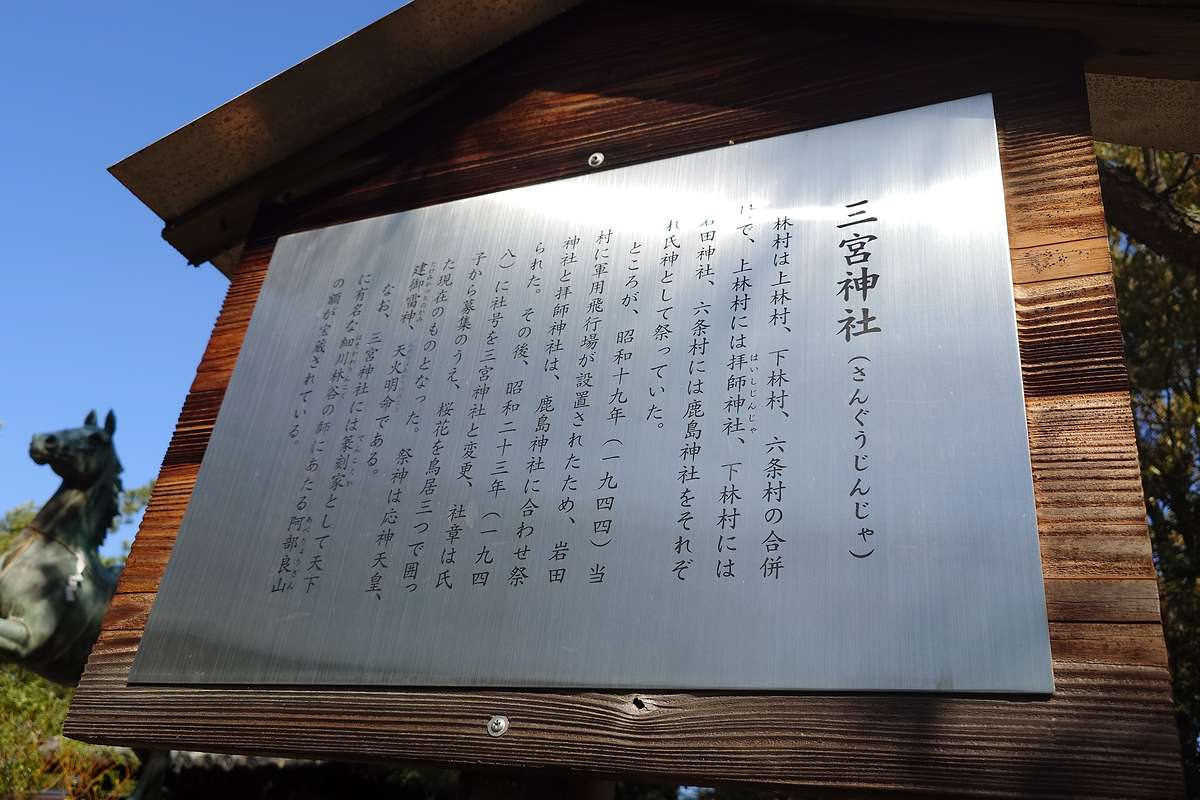 三宮神社（さんぐうじんじゃ）
林村は上林村、下林村、六条村の合併
で、上林村には拝師神社、下林村には
はいしじんじゃ
田神社、六条村には鹿島神社をそれぞ
れ氏神として祭っていた。
ところが、昭和十九年（一九四四）当
村に軍用飛行場が設置されたため、岩田
神社と拝師神社は、鹿島神社に合わせ祭
られた。その後、昭和二十三年（一九四
八）に社号を三宮神社と変更、社章は氏
子から募集のうえ、桜花を鳥居三つで囲っ
た現在のものとなった。祭神は応神天皇、
建御雷神、天火明命である。
なお、三宮神社には篆刻家として天下
てんこくか
に有名な細川林谷の師にあたる阿部良山
あべりょうざん
の額が宝蔵されている。